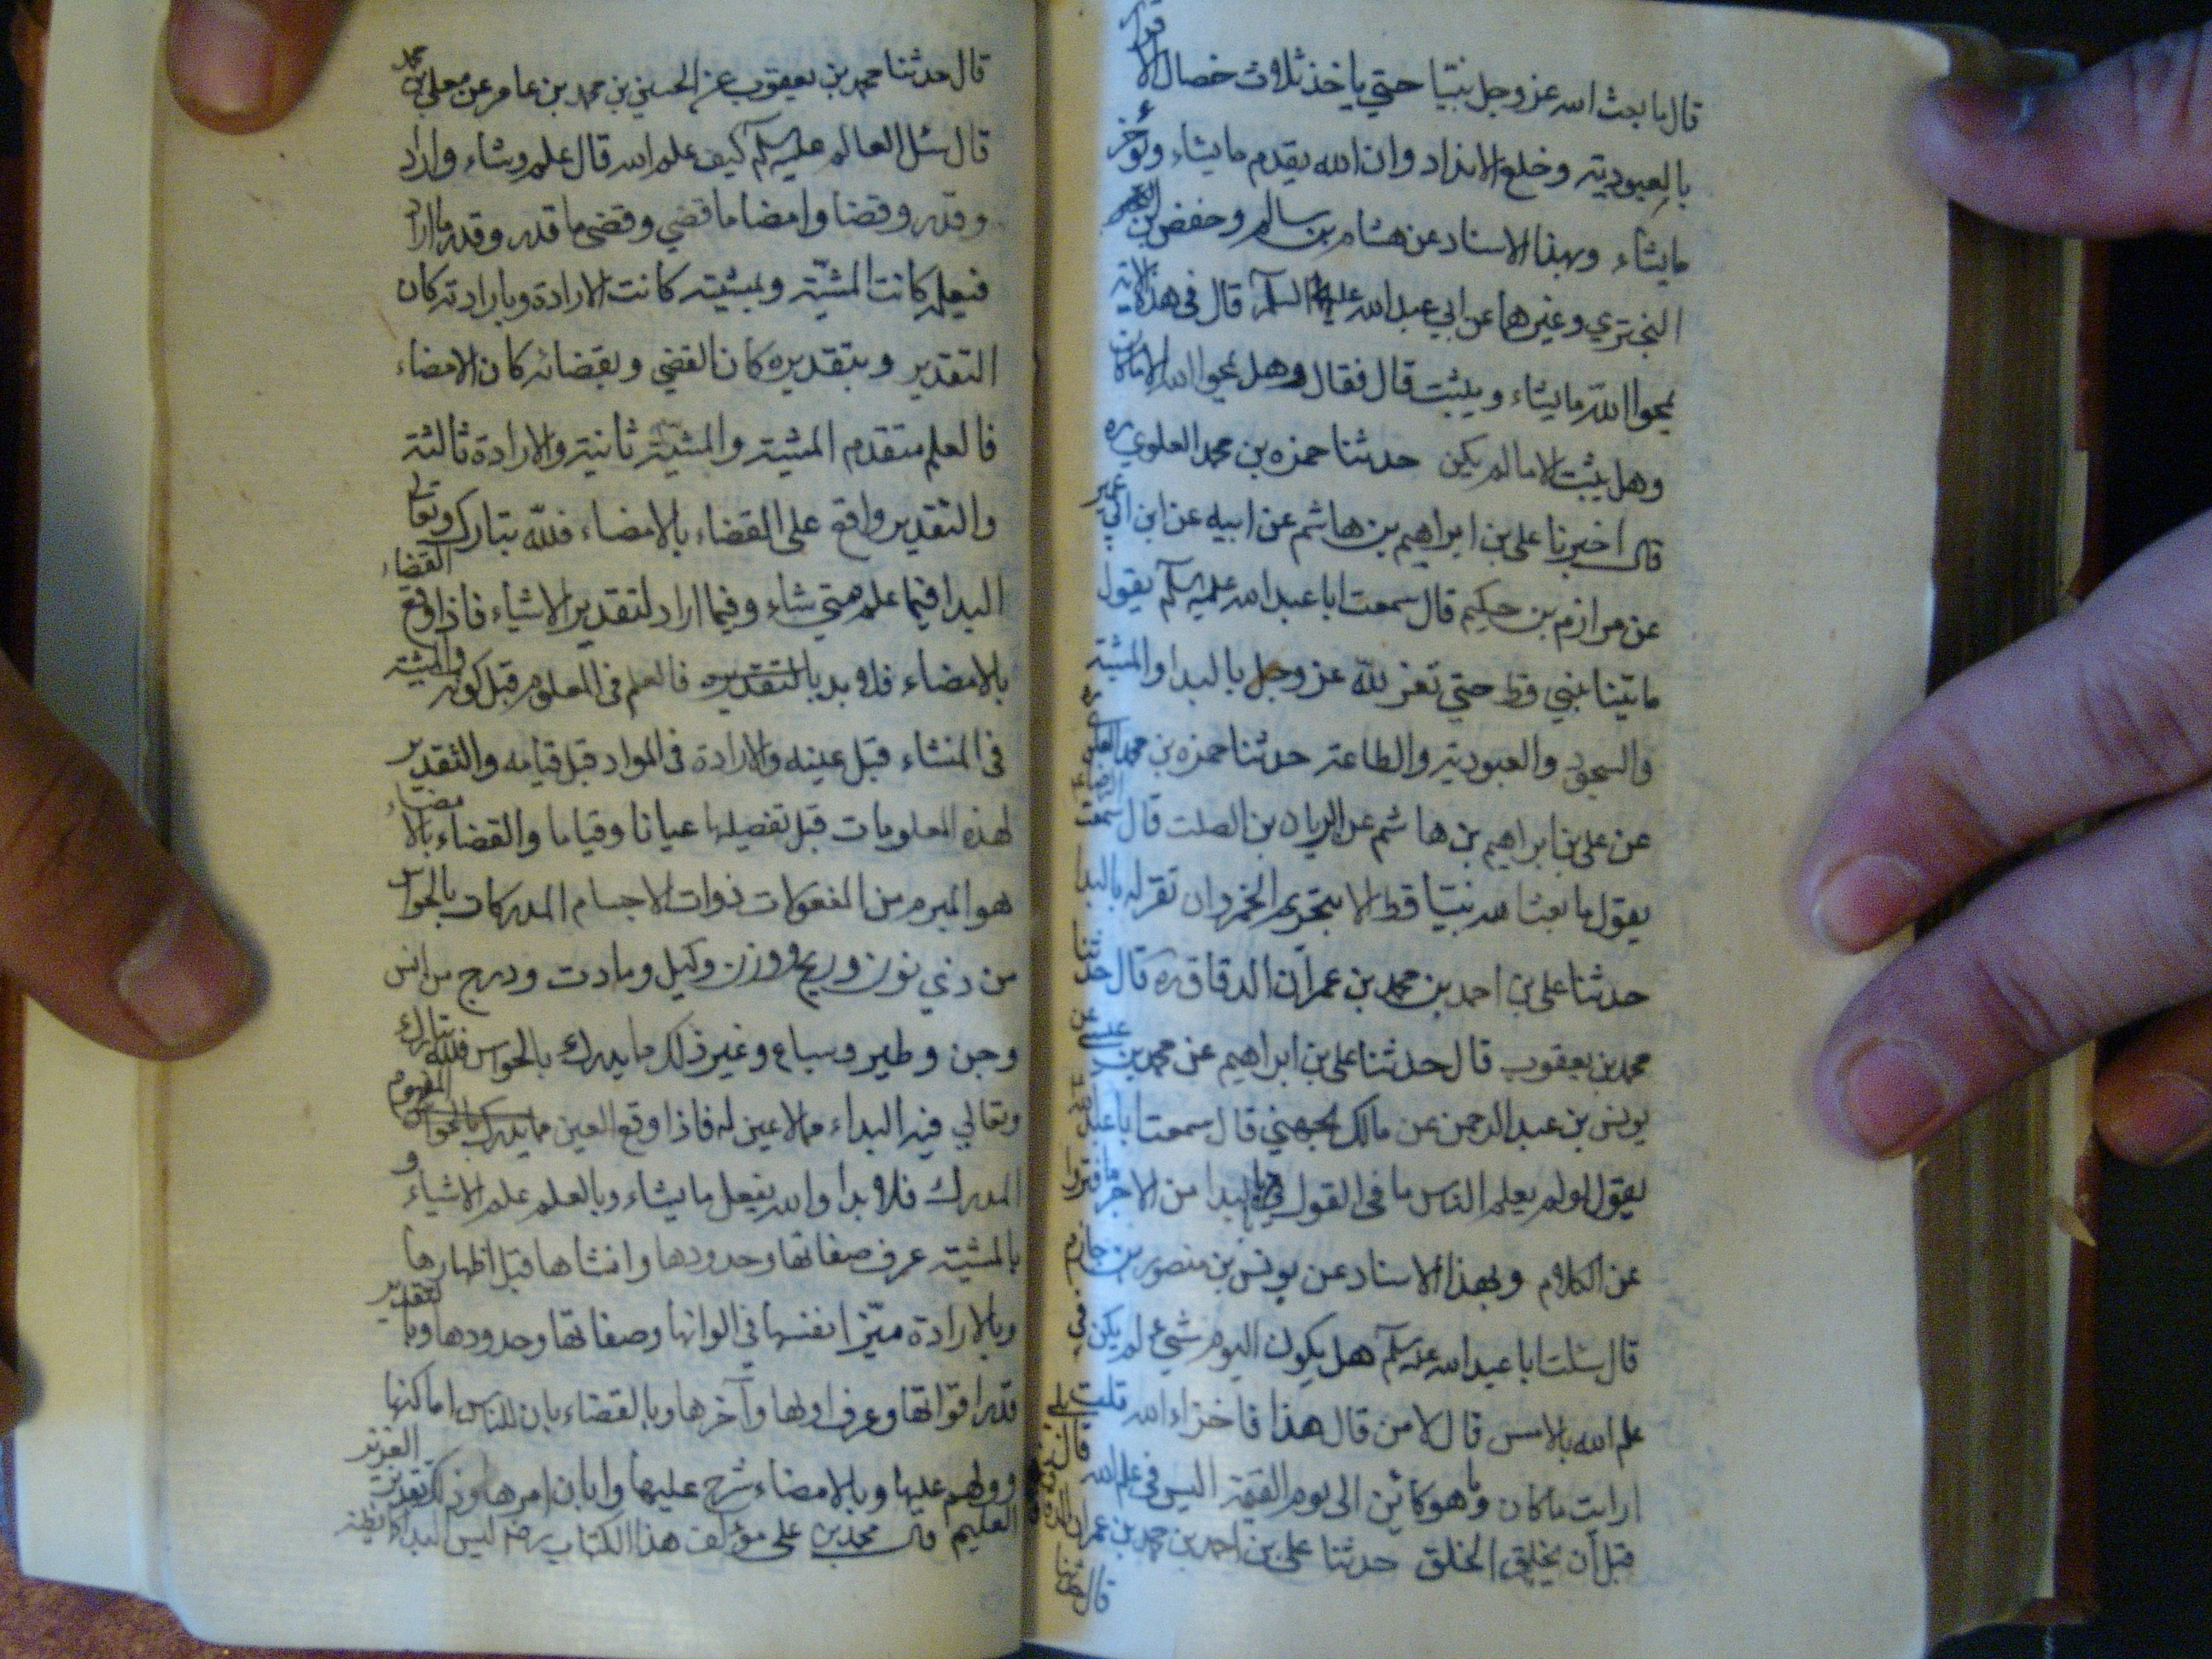 قال ما بعث الله عز وجل نبيا حتي ياخذ ثلاث خصال الاقرار
بالعبودية وخلع الانداد وان الله يقدم ما يشاء ويؤخر
ما يشاء وبهذا الاسناد عن هشام بن سالم وحفض بن
البختري وغيرهما عن ابي عبد الله عليه السلم قال في هذه الاية
يمحوا الله ما يشاء ويثبت قال فقال وهل يمحوا الله الا ما كان
وهل يثبت الا ما لم يكن حدثنا حمزه بن محمد العلوي ره
قال اخبرنا علي بن ابراهيم بن هاشم عن ابيه عن ابن ابي عمير
عن مرازم بن حكيم قال سمعت ابا عبد الله عليه السلم يقول
ما تنبا نبي قط حتي تقر لله عز وجل بالبدا والمشية
والسجود والعبودية والطاعة حدثنا حمزه بن محمد العلوي ره
عن علي بن ابراهيم بن هاشم عن الريان بن الصلت قال سمعت الرضا
يقول ما بعث الله نبيا قط الا بتحريم الخمر وان تقر له بالبدا
حدثنا علي بن احمد بن محمد بن عمران الدقاق ره قال حدثنا
محمد بن يعقوب قال حدثنا علي بن ابراهيم عن محمد بن عيسي عن
يونس بن عبد الرحمن عن مالك الجهني قال سمعت ابا عبد الله
يقول لو لم يعلم الناس ما في القول في البدا من الاجر ما فتروا
عن الكلام وبهذا الاسناد عن يونس بن منصور بن حازم
قال سئلت ابا عبد الله عليه السلم هل يكون اليوم شيء لم يكن في
علم الله بالامس قال لا من قال هذا فاخزاه الله قلت
ارايت ما كان وما هو كائن الي يوم القيمة اليس في علم الله قال بلي
قبل ان يخلق الخلق حدثنا علي بن احمد بن محمد بن عمران الدقاق ره
قال حدثنا
قال حدثنا محمد بن يعقوب عن الحسين بن محمد بن عامر عن معلي بن محمد
قال سئل العالم عليه السلم كيف علم الله قال علم وشاء واراد
وقدر وقضا وامضا ما قضي وقضي ما قدر وقدر ما اراد
فبعلمه كانت المشية وبمشيته كانت الارادة وبارادته كان
التقدير وبتقديره كان القضي وبقضائه كان الامضاء
فالعلم متقدم المشية والمشية ثانية والارادة ثالثة
والتقدير واقع علي القضاء بالامضاء فلله تبارك وتعالي
البدا فيما علم متي شاء وفيما اراد لتقدير الاشياء فاذا وقع القضاء
بالامضاء فلا بدا بالتقدير فالعلم في المعلوم قبل كونه والمشية
في المنشاء قبل عينه والارادة في المواد قبل قيامه والتقدير
لهذه المعلومات قبل تفصيلها عيانا وقياما والقضاء بالامضاء
هو المبرم من المفعولات ذوات الاجسام المدركات بالحواس
من ذي نون وريح ووزن وكيل وما دت ودرج من انس
وجن وطير وسباع وغير ذلك ما يدرك بالحواس فلله تبارك
وتعالي فيه البداء مما لا عين له فاذا وقع العين المفهوم
المدرك فلا بدا والله يفعل ما يشاء وبالعلم علم الاشياء و
بالمشية عرف صفاتها وحدودها وانشاها قبل اظهارها
وبالارادة ميز انفسها في الوانها وصفاتها وحدودها وبالتقدير
قدر اقواتها وعرف اولها وآخرها وبالقضاء بان للناس اماكنها
ودلهم عليها وبالامضاء شرح عليها وابان امرها وذلك تقدير العزيز
العليم قال محمد بن علي مؤلف هذا الكتاب رضه ليس البدا كما يظنه